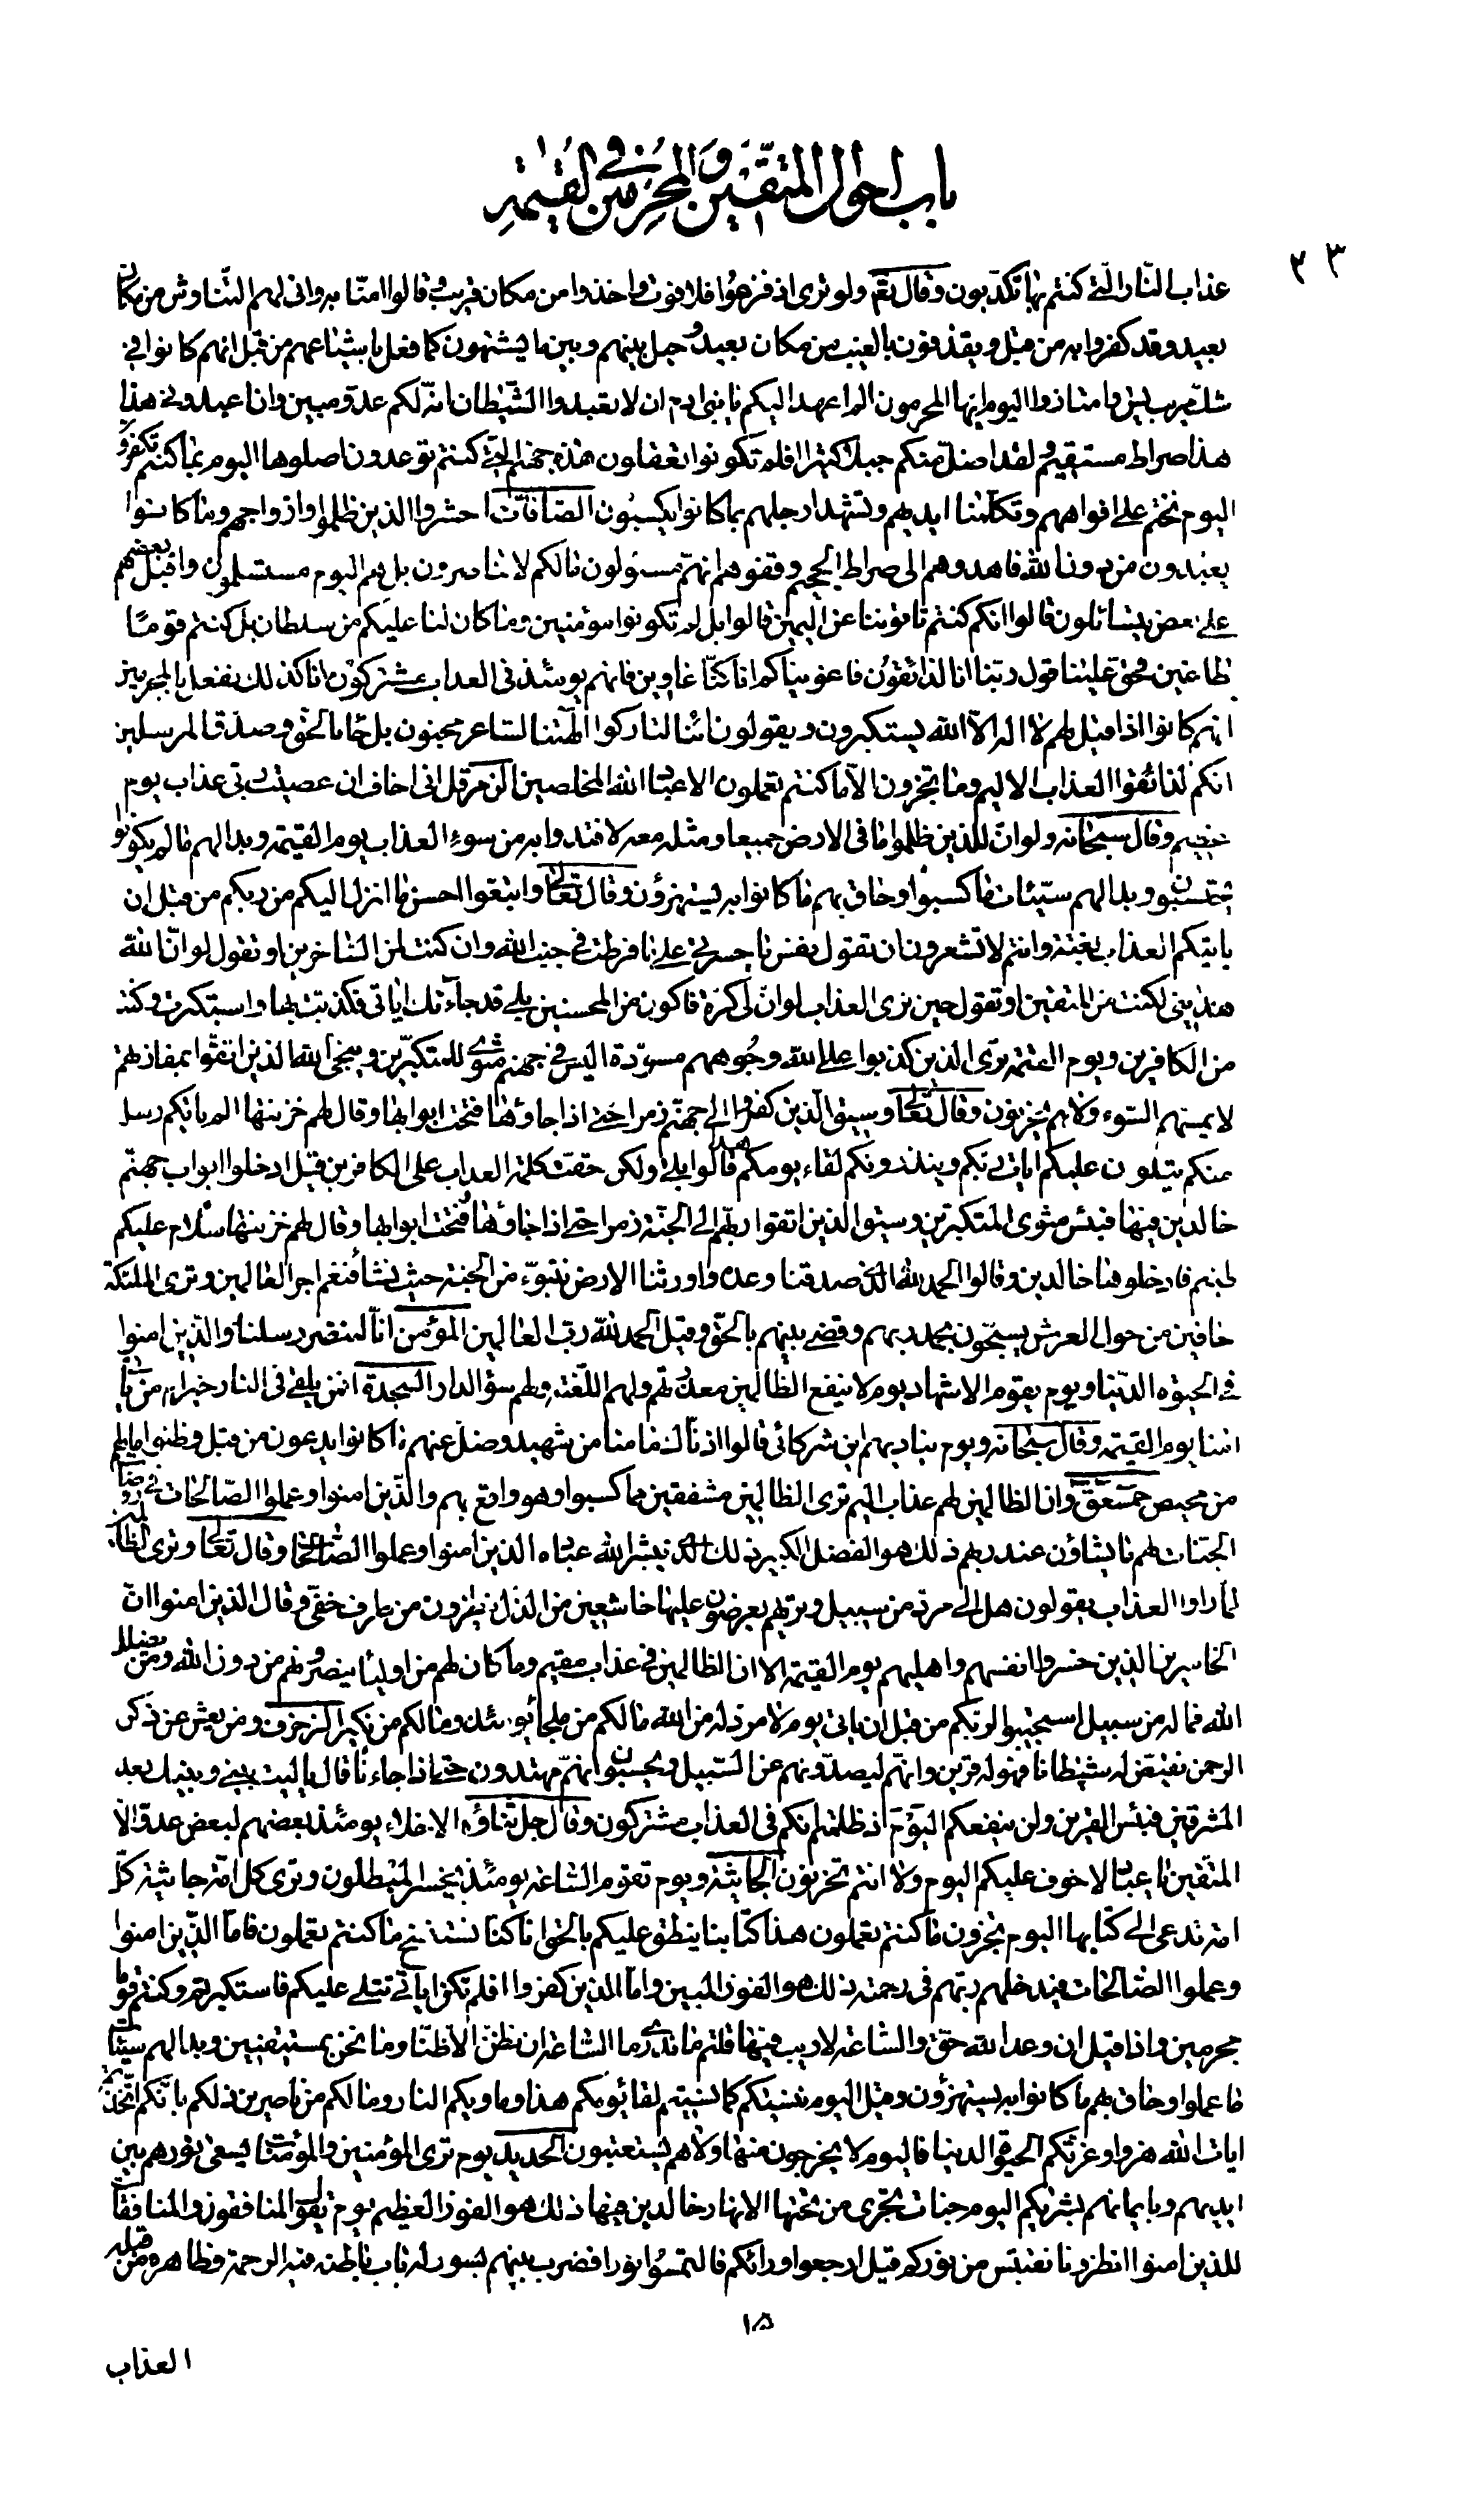 باب احوال المتقين والمجرمين في القيمة
٢٣
عذاب النار التي كنتم بها تكذبون وقال تعم ولو ترى اذ فزعوا فلا فوت واخذوا من مكان قريب وقالوا امنا به وانى لهم التناوش من مكان
بعيد وقد كفروا به من قبل ويقذفون بالغيب من مكان بعيد وحيل بينهم وبين ما يشتهون كما فعل باشياعهم من قبل انهم كانوا في
شك مريب يس وامتازوا اليوم ايها المجرمون الم اعهد اليكم يا بني ادم ان لا تعبدوا الشيطان انه لكم عدو مبين وان اعبدوني هذا
هذا صراط مستقيم ولقد اضل منكم جبلا كثيرا افلم تكونوا تعقلون هذه جهنم التي كنتم توعدون اصلوها اليوم بما كنتم تكفرون
اليوم نختم على افواههم وتكلمنا ايديهم وتشهد ارجلهم بما كانوا يكسبون الصافات احشروا الذين ظلموا وازواجهم وما كانوا
يعبدون من دون الله فاهدوهم الى صراط الجحيم وقفوهم انهم مسئولون مالكم لا تناصرون بل هم اليوم مستسلمون واقبل بعضهم
على بعض يتسائلون قالوا انكم كنتم تاتوننا عن اليمين قالوا بل لم تكونوا مؤمنين وما كان لنا عليكم من سلطان بل كنتم قوما
طاغين فحق علينا قول ربنا انا لذائقون فاغويناكم انا كنا غاوين فانهم يومئذ في العذاب مشتركون انا كذلك نفعل بالمجرمين
انهم كانوا اذا قيل لهم لا اله الا الله يستكبرون ويقولون ائنا لتاركوا الهتنا لشاعر مجنون بل جاء بالحق وصدق المرسلين
انكم لذائقوا العذاب الاليم وما تجزون الا ما كنتم تعملون الا عباد الله المخلصين الزمر قل اني اخاف ان عصيت ربي عذاب يوم
عظيم وقال سبحانه ولو ان للذين ظلموا ما في الارض جميعا ومثله معه لافتدوا به من سوء العذاب يوم القيمة وبدا لهم ما لم يكونوا
يحتسبون وبدا لهم سيئات ما كسبوا وحاق بهم ما كانوا به يستهزؤن وقال تعالى واتبعوا احسن ما انزل اليكم من ربكم من قبل ان
ياتيكم العذاب بغتة وانتم لا تشعرون ان تقول نفس يا حسرتي على ما فرطت في جنب الله وان كنت لمن الساخرين او تقول لو ان الله
هداني لكنت من المتقين او تقول حين ترى العذاب لو ان لي كرة فاكون من المحسنين بلى قد جاءتك اياتي فكذبت بها واستكبرت وكنت
من الكافرين ويوم القيمة ترى الذين كذبوا على الله وجوههم مسودة اليس في جهنم مثوى للمتكبرين وينجي الله الذين اتقوا بمفازتهم
لا يمسهم السوء ولا هم يحزنون وقال تعالى وسيق الذين كفروا الى جهنم زمرا حتى اذا جاؤها فتحت ابوابها وقال لهم خزنتها الم ياتكم رسل
منكم يتلون عليكم ايات ربكم وينذرونكم لقاء يومكم هذا قالوا بلى ولكن حقت كلمة العذاب على الكافرين قيل ادخلوا ابواب جهنم
خالدين فيها فبئس مثوى المتكبرين وسيق الذين اتقوا ربهم الى الجنة زمرا حتى اذا جاؤها وفتحت ابوابها وقال لهم خزنتها سلام عليكم
طبتم فادخلوها خالدين وقالوا الحمد لله الذي صدقنا وعده واورثنا الارض نتبوء من الجنة حيث نشاء فنعم اجر العاملين وترى الملئكة
حافين من حول العرش يسبحون بحمد ربهم وقضى بينهم بالحق وقيل الحمد لله رب العالمين المؤمن انا لننصر رسلنا والذين امنوا
في الحيوة الدنيا ويوم يقوم الاشهاد يوم لا ينفع الظالمين معذرتهم ولهم اللعنة ولهم سؤ الدار السجدة افمن يلقى في النار خير ام من ياتي
امنا يوم القيمة وقال سبحانه ويوم يناديهم اين شركائي قالوا اذناك ما منا من شهيد وضل عنهم ما كانوا يدعون من قبل وظنوا ما لهم
من محيص حمعسق وان الظالمين لهم عذاب اليم ترى الظالمين مشفقين مما كسبوا وهو واقع بهم والذين امنوا وعملوا الصالحات في روضات
الجنات لهم ما يشاؤن عند ربهم ذلك هو الفضل الكبير ذلك الذي يبشر الله عباده الذين امنوا وعملوا الصالحات وقال تعالى وترى الظالمين
لما راوا العذاب يقولون هل الى مرد من سبيل وتريهم يعرضون عليها خاشعين من الذل ينظرون من طرف خفي وقال الذين امنوا ان
الخاسرين الذين خسروا انفسهم واهليهم يوم القيمة الا ان الظالمين في عذاب مقيم وما كان لهم من اولياء ينصرونهم من دون الله ومن يضلل
الله فما له من سبيل استجيبوا لربكم من قبل ان ياتي يوم لا مرد له من الله ما لكم من ملجأ يومئذ وما لكم من نكير الزخرف ومن يعش عن ذكر
الرحمن نقيض له شيطانا فهو له قرين وانهم ليصدونهم عن السبيل ويحسبون انهم مهتدون حتى اذا جاءنا قال يا ليت بيني وبينك بعد
المشرقين فبئس القرين ولن ينفعكم اليوم اذ ظلمتم انكم في العذاب مشتركون وقال جل ثناؤه الاخلاء يومئذ بعضهم لبعض عدو الا
المتقين يا عباد لا خوف عليكم اليوم ولا انتم تحزنون الجاثية ويوم تقوم الساعة يومئذ يخسر المبطلون وترى كل امة جاثية كل
امة تدعى الى كتابها اليوم تجزون ما كنتم تعملون هذا كتابنا ينطق عليكم بالحق انا كنا نستنسخ ما كنتم تعملون فاما الذين امنوا
وعملوا الصالحات فيدخلهم ربهم في رحمته ذلك هو الفوز المبين واما الذين كفروا افلم تكن اياتي تتلى عليكم فاستكبرتم وكنتم قوما
مجرمين واذا قيل ان وعد الله حق والساعة لا ريب فيها قلتم ما ندري ما الساعة ان نظن الا ظنا وما نحن بمستيقنين وبدا لهم سيئات
ما عملوا وحاق بهم ما كانوا به يستهزؤن وقيل اليوم ننسيكم كما نسيتم لقاء يومكم هذا وماويكم النار وما لكم من ناصرين ذلكم بانكم اتخذتم
ايات الله هزوا وغرتكم الحيوة الدنيا فاليوم لا يخرجون منها ولا هم يستعتبون الحديد يوم ترى المؤمنين والمؤمنات يسعى نورهم بين
ايديهم وبايمانهم بشريكم اليوم جنات تجري من تحتها الانهار خالدين فيها ذلك هو الفوز العظيم يوم يقول المنافقون والمنافقات
للذين امنوا انظرونا نقتبس من نوركم قيل ارجعوا ورائكم فالتمسوا نورا فضرب بينهم بسور له باب باطنه فيه الرحمة وظاهره من قبله
١٥
العذاب